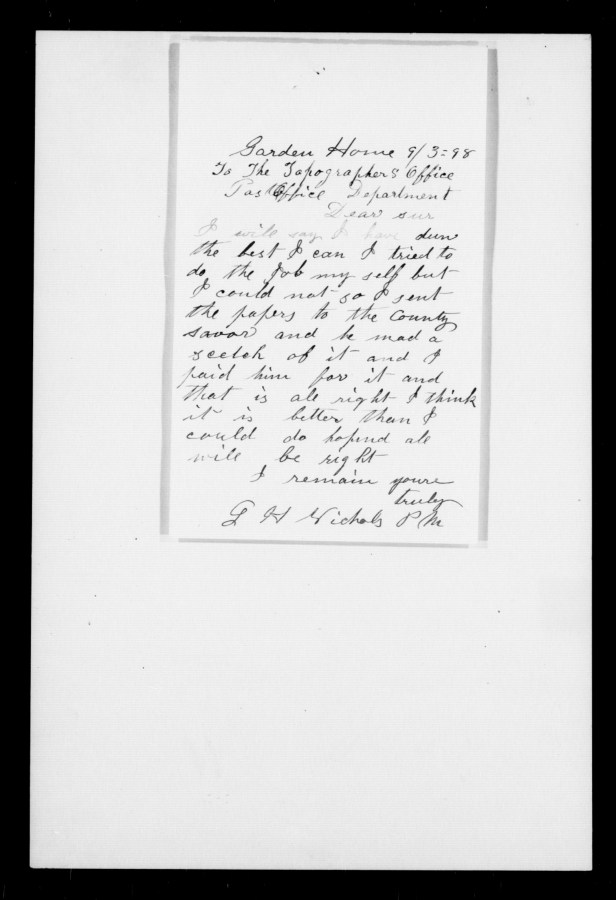 Garden Home 9/3=98
To The Topographers Office
Post Office Department
Dear sur
I will say I have dun
the best I can I tried to
do the Job my self but
I could not so I sent
the papers to the County
savor and he mad a
scetch of it and I
paid him for it and
that is all right I think
it is better than I
could do hopind all
will be right
I remain youre
truly
G H Nichols P M